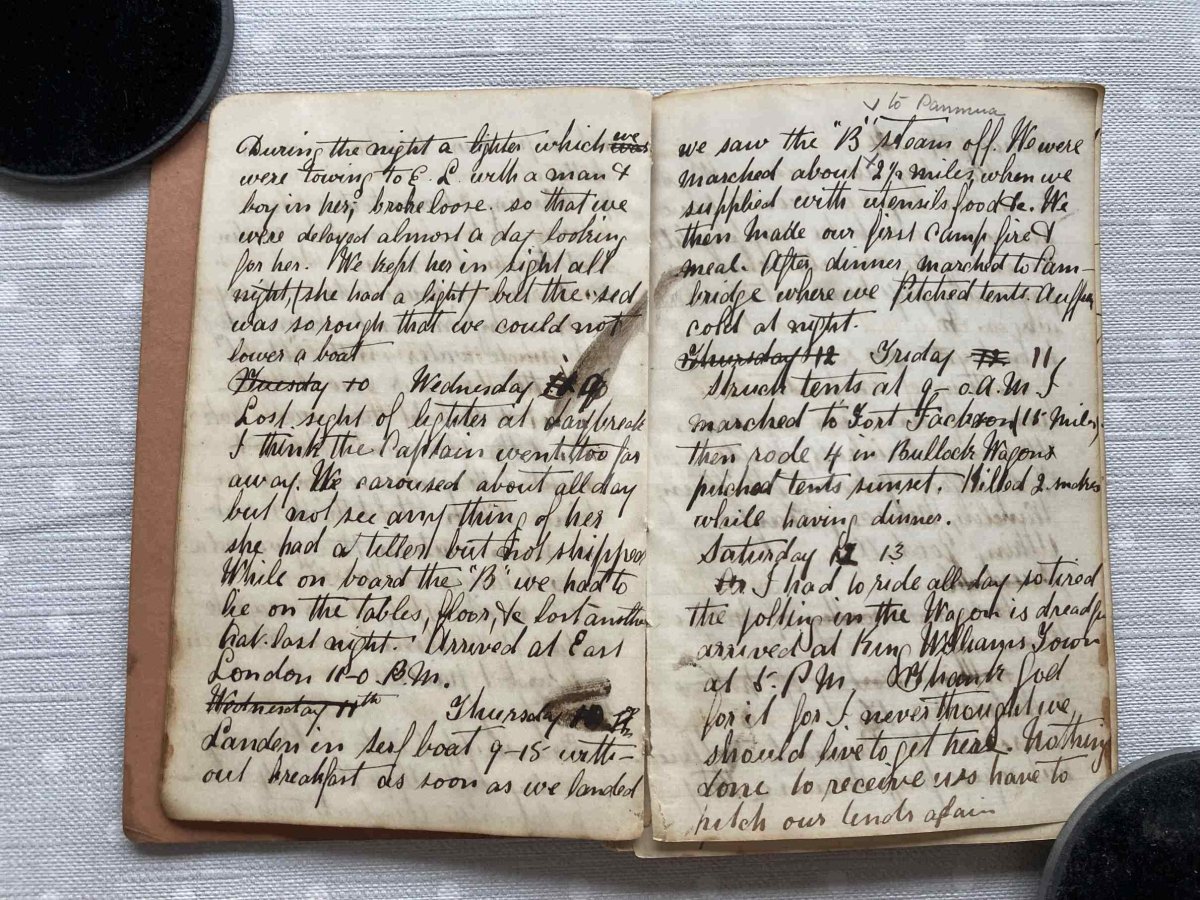 During the night a lighter which we was
were towing to E. L. with a man &
boy in her, broke loose. so that we
were delayed almost a day looking
for her. We kept her in sight all
night, (she had a light) but the sea
was so rough that we could not
lower a boat
Tuesday 10 Wednesday 9
Lost sight of lighter at daybreak
I think the Captain went too far
away. We caroused about all day
but not see any thing of her
she had a tiller but not shipped
While on board the "B" we had to
lie on the tables, floor, &c lost another
hat last night. Arrived at East
London 11-0 P.M.
Wednesday 11th Thursday 10
Landen in serf boat 9-15 with-
out breakfast as soon as we landed
to Panmua
we saw the "B" steam off. We were
marched about 2½ miles, when we
supplied with utensils food &c. We
then made our first camp fire &
meal. After dinner marched to Cam-
bridge where we pitched tents.
cold at night.
Thursday 12 Friday 12 11
Struck tents at 9-0 A.M. &
marched to Fort Jackson (15 Miles)
then rode 4 in Bullock Wagons
pitched tents sunset. Killed 2 snakes
while having dinner.
Saturday 12 13
I had to ride all day so tired
the jolting in the Wagon is dreadful
arrived at King Williams Town
at 5. P M. Thank God
for it for I never thought we
should live to get here. Nothing
done to receive us have to
pitch our tents again